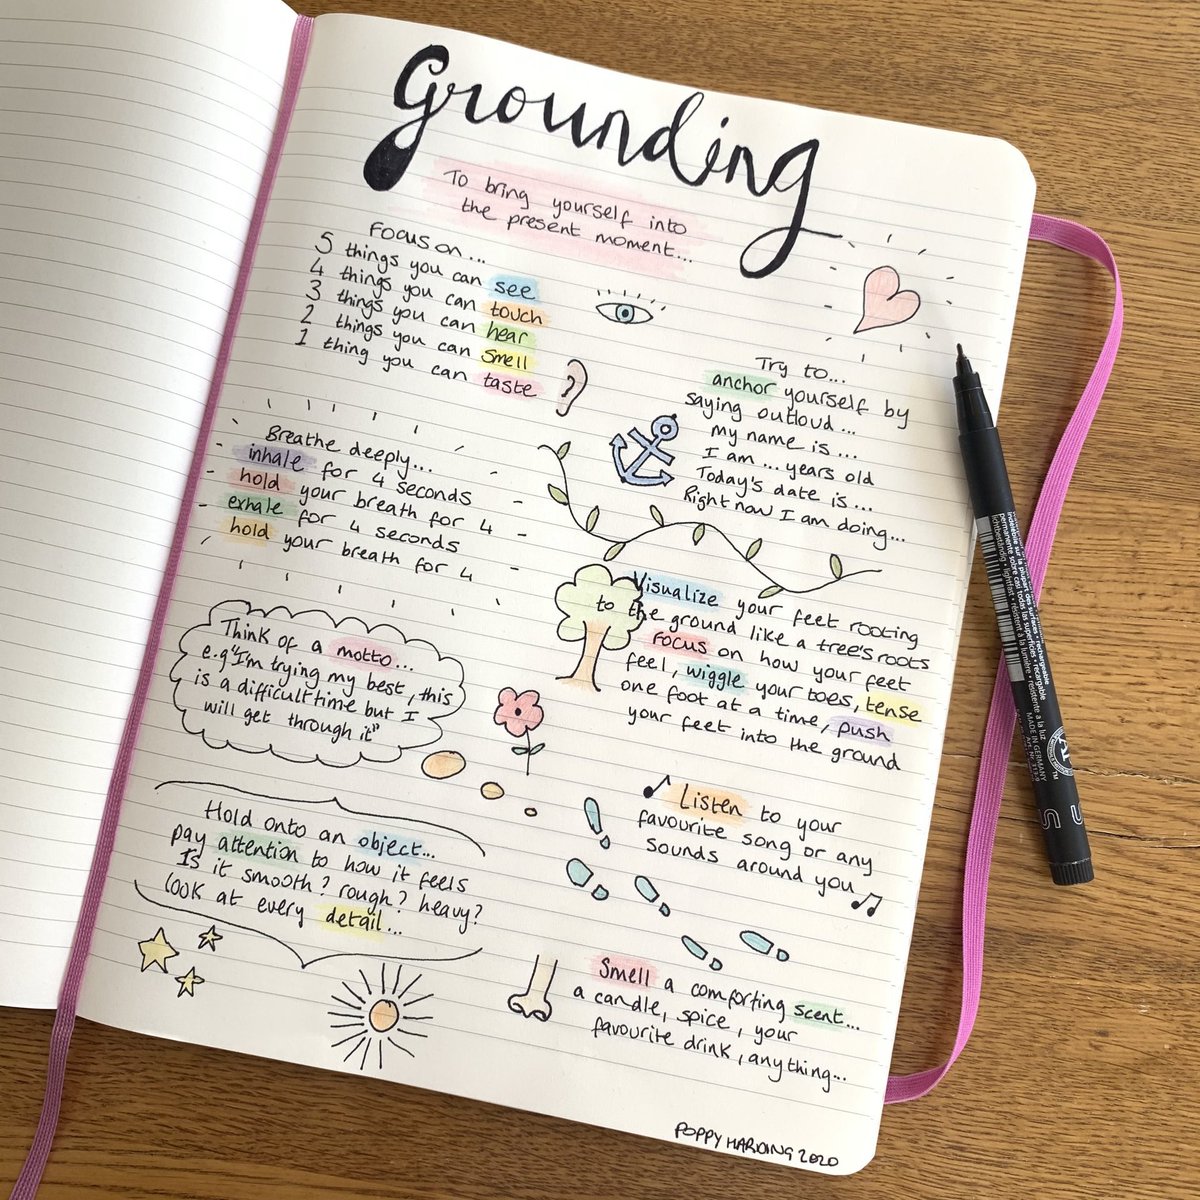 Grounding
To bring yourself into
the present moment...
Focus on...
5 things you can see
4 things you can touch
3 things you can hear
2 things you can smell
1 thing you can taste
Try to...
anchor yourself by
saying outloud...
my name is...
I am ... years old
Today's date is...
Right now I am doing...
Breathe deeply...
inhale for 4 seconds
hold your breath for 4
exhale for 4 seconds
hold your breath for 4
Visualize your feet rooting
to the ground like a tree's roots
Focus on how your feet
feel, wiggle your toes, tense
one foot at a time, push
your feet into the ground
Think of a motto...
e.g "I'm trying my best, this
is a difficult time but I
will get through it"
Listen to your
favourite song or any
sounds around you
Hold onto an object...
pay attention to how it feels
Is it smooth? rough? heavy?
look at every detail...
Smell a comforting scent...
a candle, spice, your
favourite drink, anything...
POPPY HARDING 2020
permanente sobre casi todas las superficies • recargable
lichtbeständig • lightfast • résistent à la lumière • resistente a la luz
MADE IN GERMANY